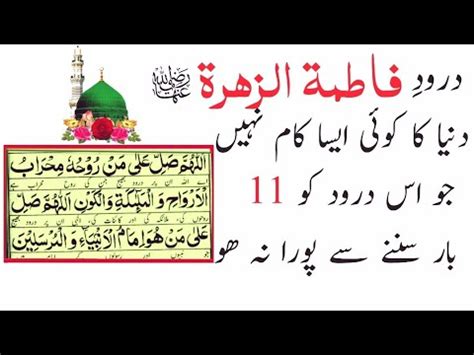 درودِ فاطمۃ الزھرۃ رضی اللہ عنہا
دنیا کا کوئی ایسا کام نہیں
جو اس درود کو 11
بار سننے سے پورا نہ ھو
اَللّٰهُمَّ صَلِّ عَلٰى مَنْ رُوْحُهٗ مِحْرَابُ
الْاَرْوَاحِ وَالْمَلٰٓئِكَةِ وَالْكَوْنِ اَللّٰهُمَّ صَلِّ
عَلٰى مَنْ هُوَ اِمَامُ الْاَنْبِيَآءِ وَالْمُرْسَلِيْنَ